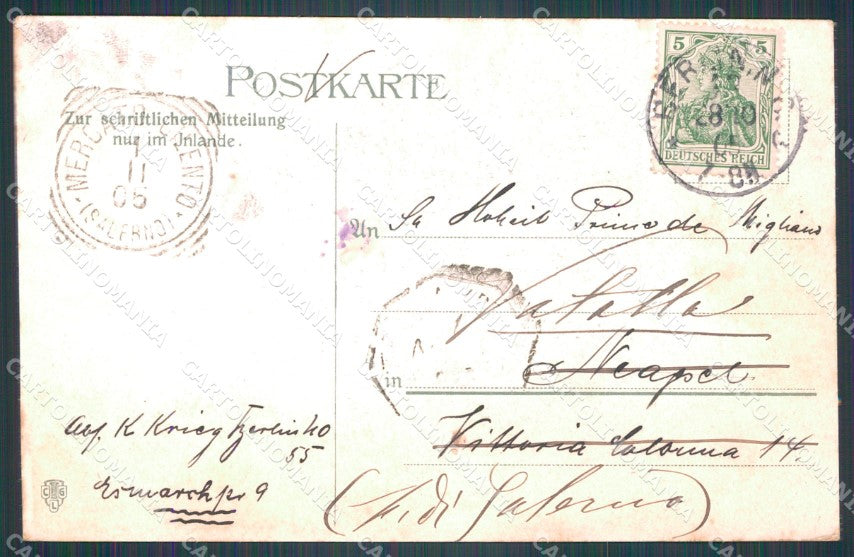 POSTKARTE
Zur schriftlichen Mitteilung
nur im Inlande.
MERCATO CILENTO
1
11
05
(SALERNO)
5 5
DEUTSCHES REICH
BERLIN, N.
28 10
05
7-8N
An Sr Hoheit Prince de Migliano
Vatolla
in Neapel
Vittoria Colonna 14.
(P. di Salerno)
Abs. K Krieg Berlin No
55
Esmarchstr 9
C G L
CARTOLINOMANIA